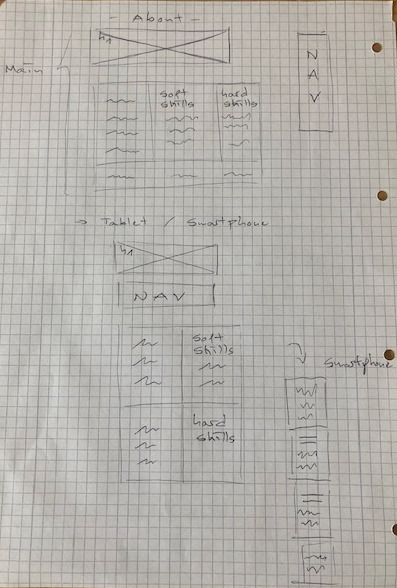 - About -
h1
Main
soft
skills
hard
skills
N
A
V
→ Tablet / Smartphone
h1
NAV
soft
skills
hard
skills
Smartphone